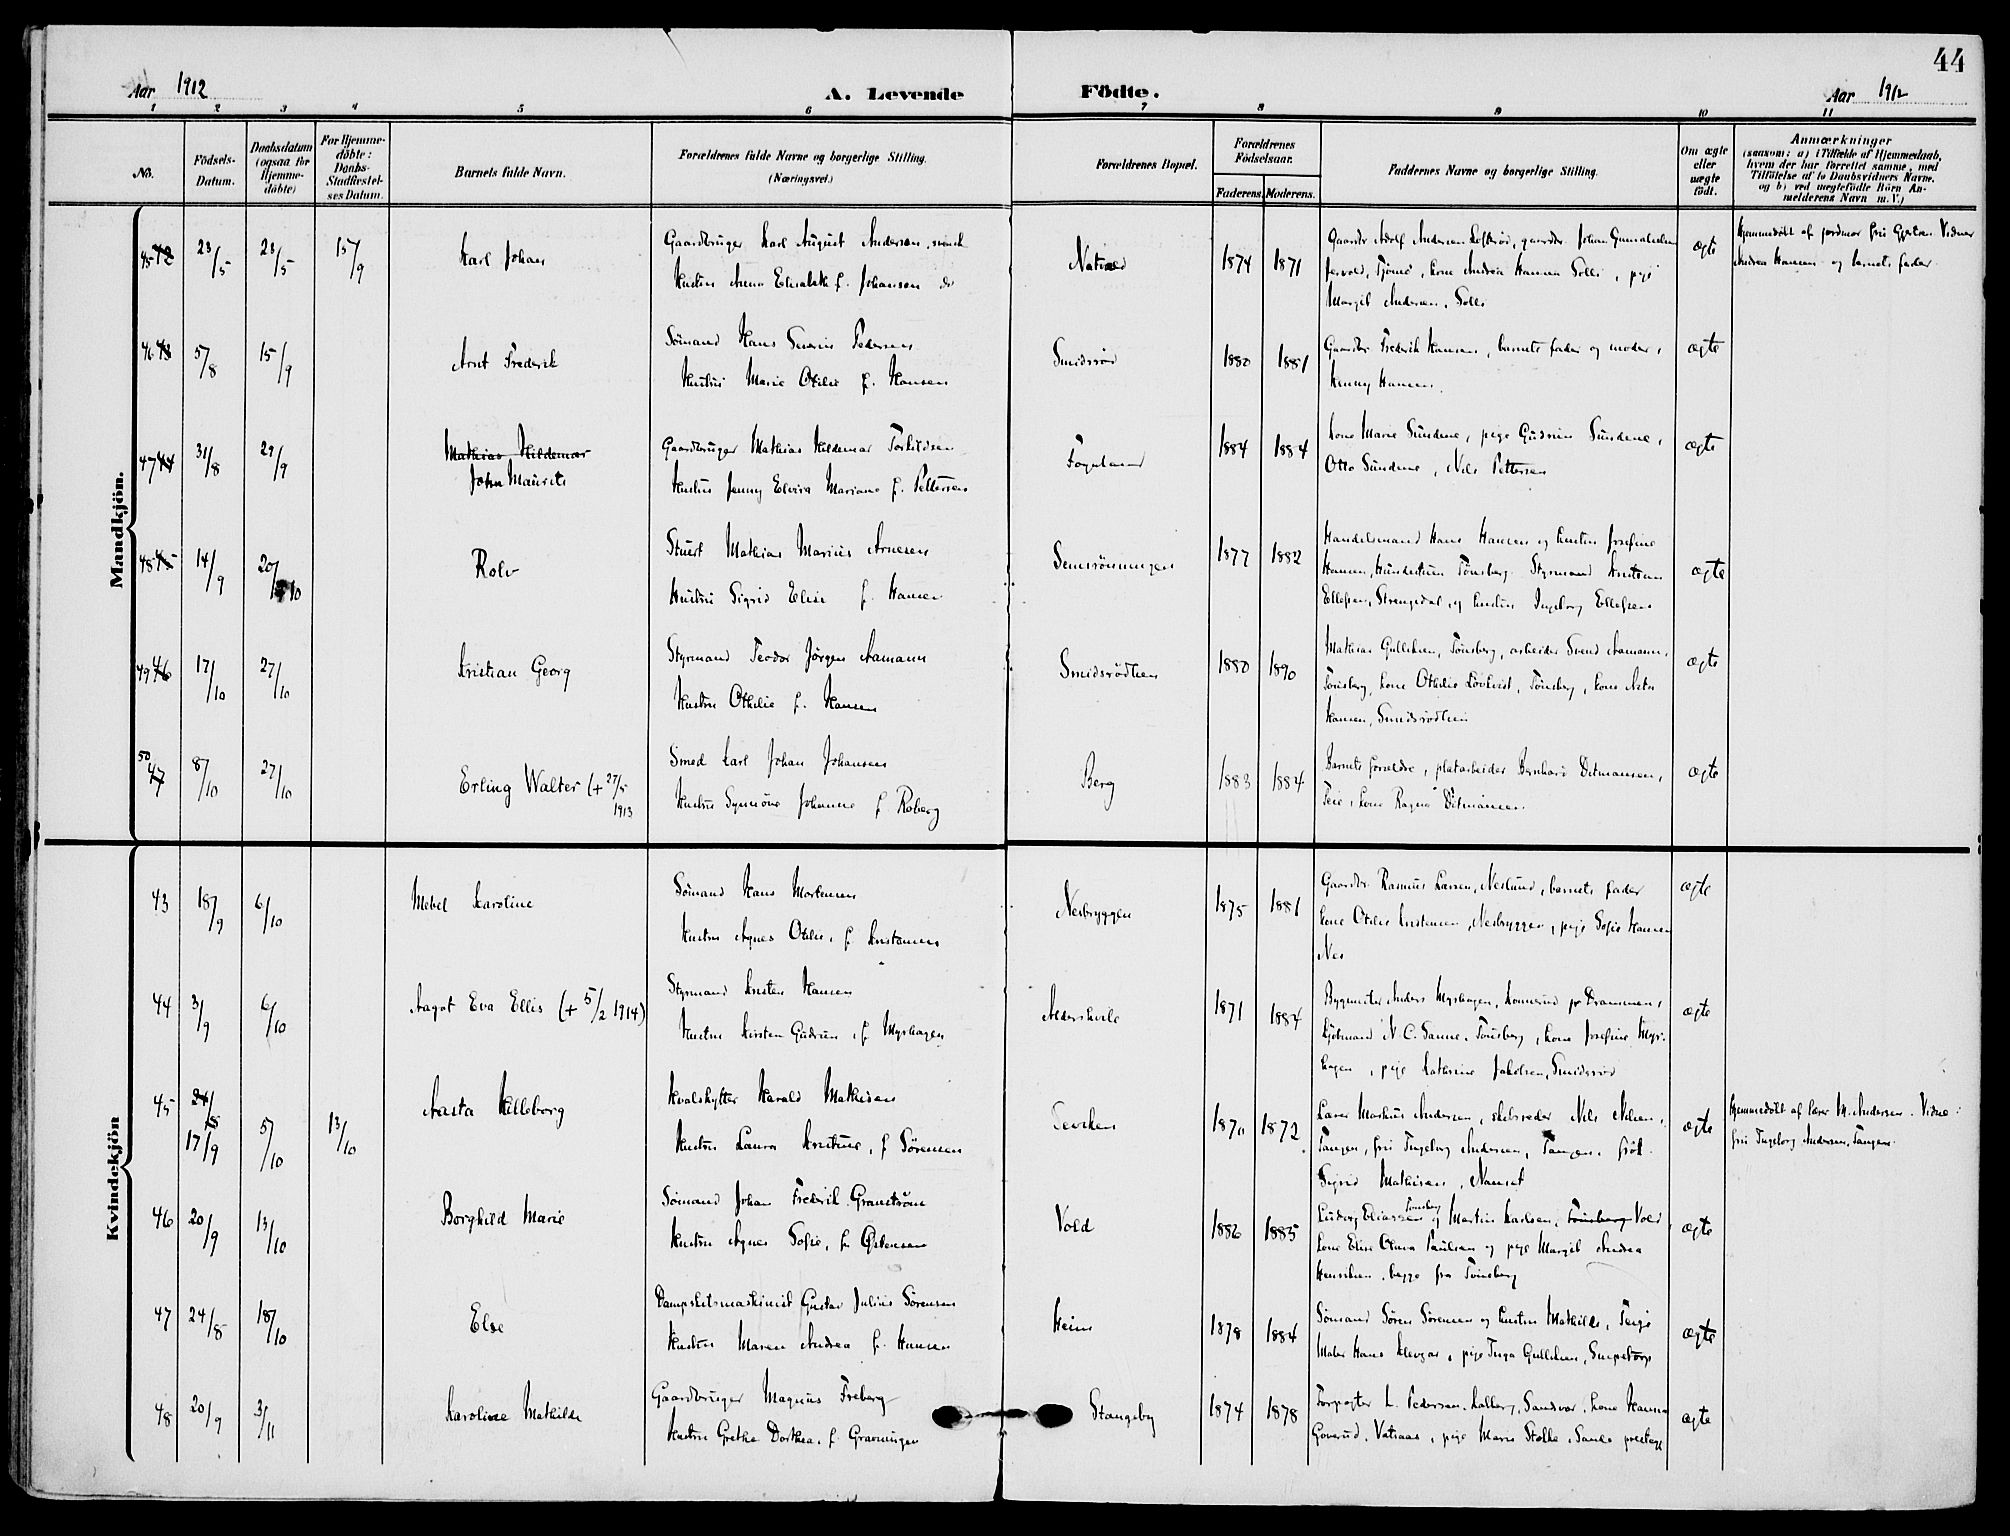 44
Aar 1912
A. Levende Födte.
Aar 1912
1 2 3 4 5 6 7 8 9 10 11
No.
Födsels-
Datum.
Daabsdatum
(ogsaa for
Hjemme-
döbte)
For Hjemme-
döbte:
Daabs-
Stadfæstel-
ses Datum.
Barnets fulde Navn.
Forældrenes fulde Navne og borgerlige Stilling.
(Næringsvei.)
Forældrenes Bopæl.
Forældrenes
Födselsaar.
Faderens. Moderens.
Faddernes Navne og borgerlige Stilling.
Om ægte
eller
uægte
födt.
Anmærkninger
(saasom: a) i Tilfælde af Hjemmedaab,
hvem der har forrettet samme, med
Tilföielse af to Daabsvidners Navne,
og b) ved uægtefödte Börn An-
melderens Navn m. V.)
Mandkjön.
45 42 23/5 23/5 15/9 Karl Johan
Gaardbruger Karl August Andersen, svensk
Hustru Anna Elisabeth f. Johansen do
1874 1871
Gaardbr Adolf Andersen, gaardbr. Johan
Tjømø, kone Andrea Hansen Solli, pige
Margit Andersen, Solli
ægte
Hjemmedøbt af jordmor fru Vidner
Andrea Hansen og barnets fader.
46 43 5/8 15/9 Arnt Frederik
Sømand Hans Severin Pedersen
Hustru Marie Otilie f. Hansen
Smidsrød
1880 1881
Gaardbr. Frederik Hansen, barnets fader og moder,
Henny Hansen.
ægte
47 44 31/8 29/9 Mathias Hildemar
John Maurits
Gaardbruger Mathias Hildemar Torkildsen
Hustru Jenny Elvira Mariane f. Pettersen
Føynland
1884 1884
kone Marie Sundene, pige Gudrun Sundene,
Otto Sundene, Nils Pettersen
ægte
48 45 14/9 20/10 Rolv
Stuert Mathias Marius Arnesen
Hustru Sigrid Elise f. Hansen
1877 1882
Handelsmand Hans Hansen og hustru Josefine
Hansen, Tønsberg. Styrmand Knutsen
Ellefsen, og hustru Ingeborg Ellefsen
ægte
49 46 17/10 27/10 Kristian Georg
Styrmand Teodor Jørgen Aamann
Hustru Othilie f. Hansen
Smidsrødlien
1880 1890
Mathias Gulliksen, Tønsberg, arbeider Svend Aamann,
Tønsberg, kone Othilie Lövkvist, Tønsberg, kone
Hansen, Smidsrødlien
ægte
50 47 8/10 27/10 Erling Walter (+ 27/5
1913
Smed Karl Johan Johansen
Hustru Synnöve Johanne f. Roberg
Berg
1883 1884
Barnets forældre, platearbeider Bernhard Ditmansen,
Teie, kone Ragna Ditmansen.
ægte
Kvindekjön
43 18/9 6/10 Mebel Karoline
Sömand Hans Mortensen
Hustru Agnes Otilie, f. Kristensen
Nesbryggen
1875 1881
Gaardbr. Rasmus Larsen, Neslund, barnets fader
kone Otilie Kristensen, Nesbryggen, pige Sofie Hansen
Nes
ægte
44 3/9 6/10 Aagot Eva Ellis (+ 5/2 1914)
Styrmand Kristen Hansen
Hustru Kirsten Gudrun, f. Myrhagen
Alderskvile
1871 1884
Bygmester Anders Myrhagen, pr Drammen,
Kjøbmand N. C. Sanne, Tønsberg, kone Josefine Myr-
hagen, pige Kathrine Jakobsen, Smidsrød
ægte
45 24/8 17/9 5/10 13/10 Aasta Hilleborg
Hvalskytter Harald Mathisen
Hustru Laura Kristine, f. Sörensen
1870 1872
Lærer Markus Andersen, skibsreder Nils Nilsen,
Tangen, fru Ingeborg Andersen, Tangen, frøk.
Sigrid Mathisen, Nanset
ægte
Hjemmedøbt af lærer M. Andersen. Vidne:
fru Ingeborg Andersen, Tangen.
46 20/9 13/10 Borghild Marie
Sømand Johan Frederik Granström
Hustru Agnes Sofie, f. Østensen
Vold
1886 1885
Tønsberg
Ludvig Eliassen og Martin Karlsen, Tønsberg Vold,
kone Elise Olava Paulsen og pige Margit Andrea
Henriksen, begge fra Tønsberg
ægte
47 24/8 18/10 Else
Dampskibsmaskinist Gustav Julius Sørensen
Hustru Maren Andrea f. Hansen
Heim
1878 1884
Sømand Søren Sørensen og hustru Mathilde, Teige
Maler Hans Klevgar, pige Inga Gulliksen,
ægte
48 20/9 3/11 Karoline Mathilde
Gaardbruger Magnus Freberg
Hustru Grethe Dorthea, f. Gravningen
Stangeby
1874 1878
Forpagter L. Pedersen, Sandvær, kone Hanna
Goverud, Vatnaas, pige Marie Stolke, Sande prestegj
ægte